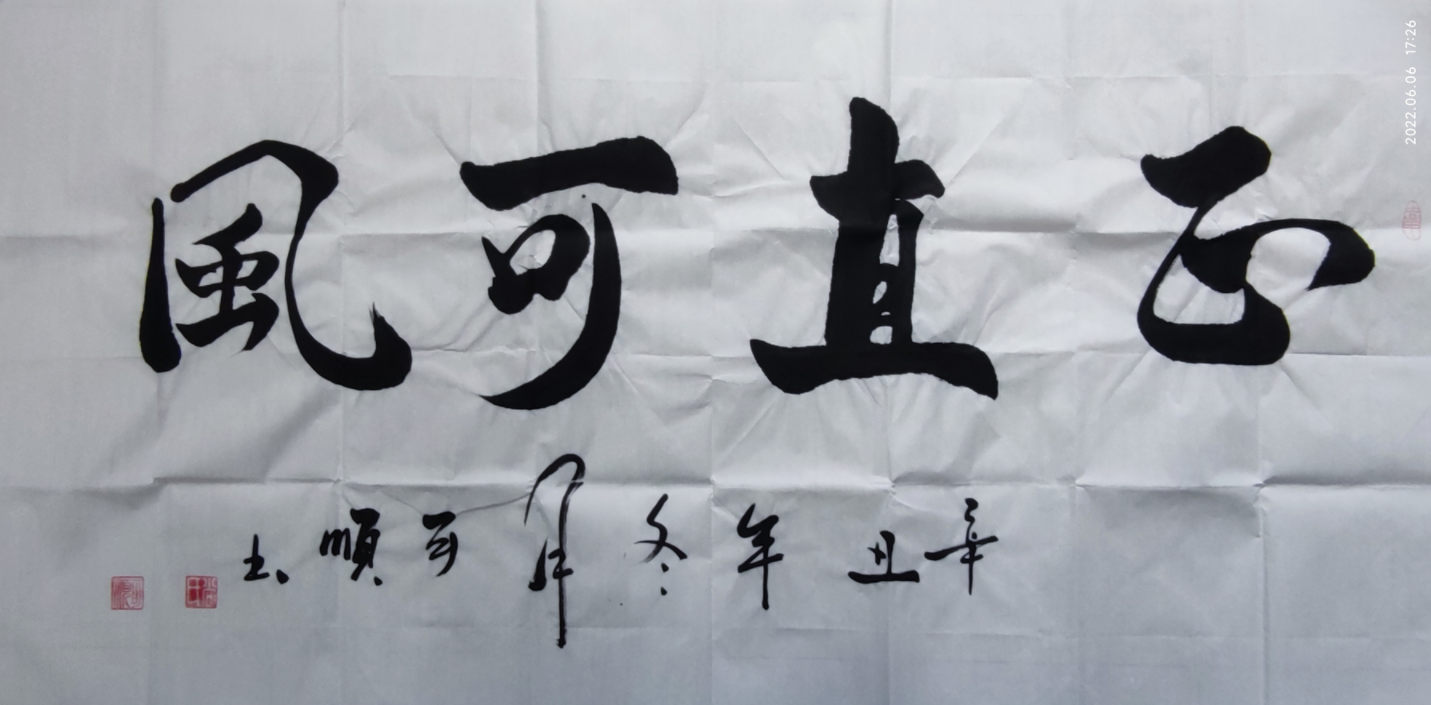 正直可風
辛丑年冬月可順书
2022.06.06 17:26